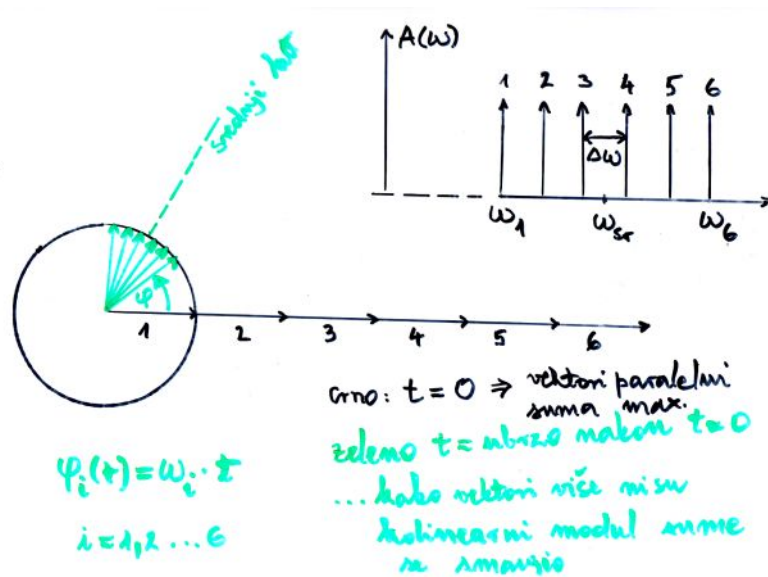 A(ω)
1 2 3 4 5 6
Δω
ω1 ωsr ω6
srednji kut
φ
1 2 3 4 5 6
crno: t = 0 ⇒ vektori paralelni
suma max.
zeleno t = ubrzo nakon t=0
... kako vektori više nisu
kolinearni modul sume
se smanjio
φi(t) = ωi · t
i = 1,2 ... 6